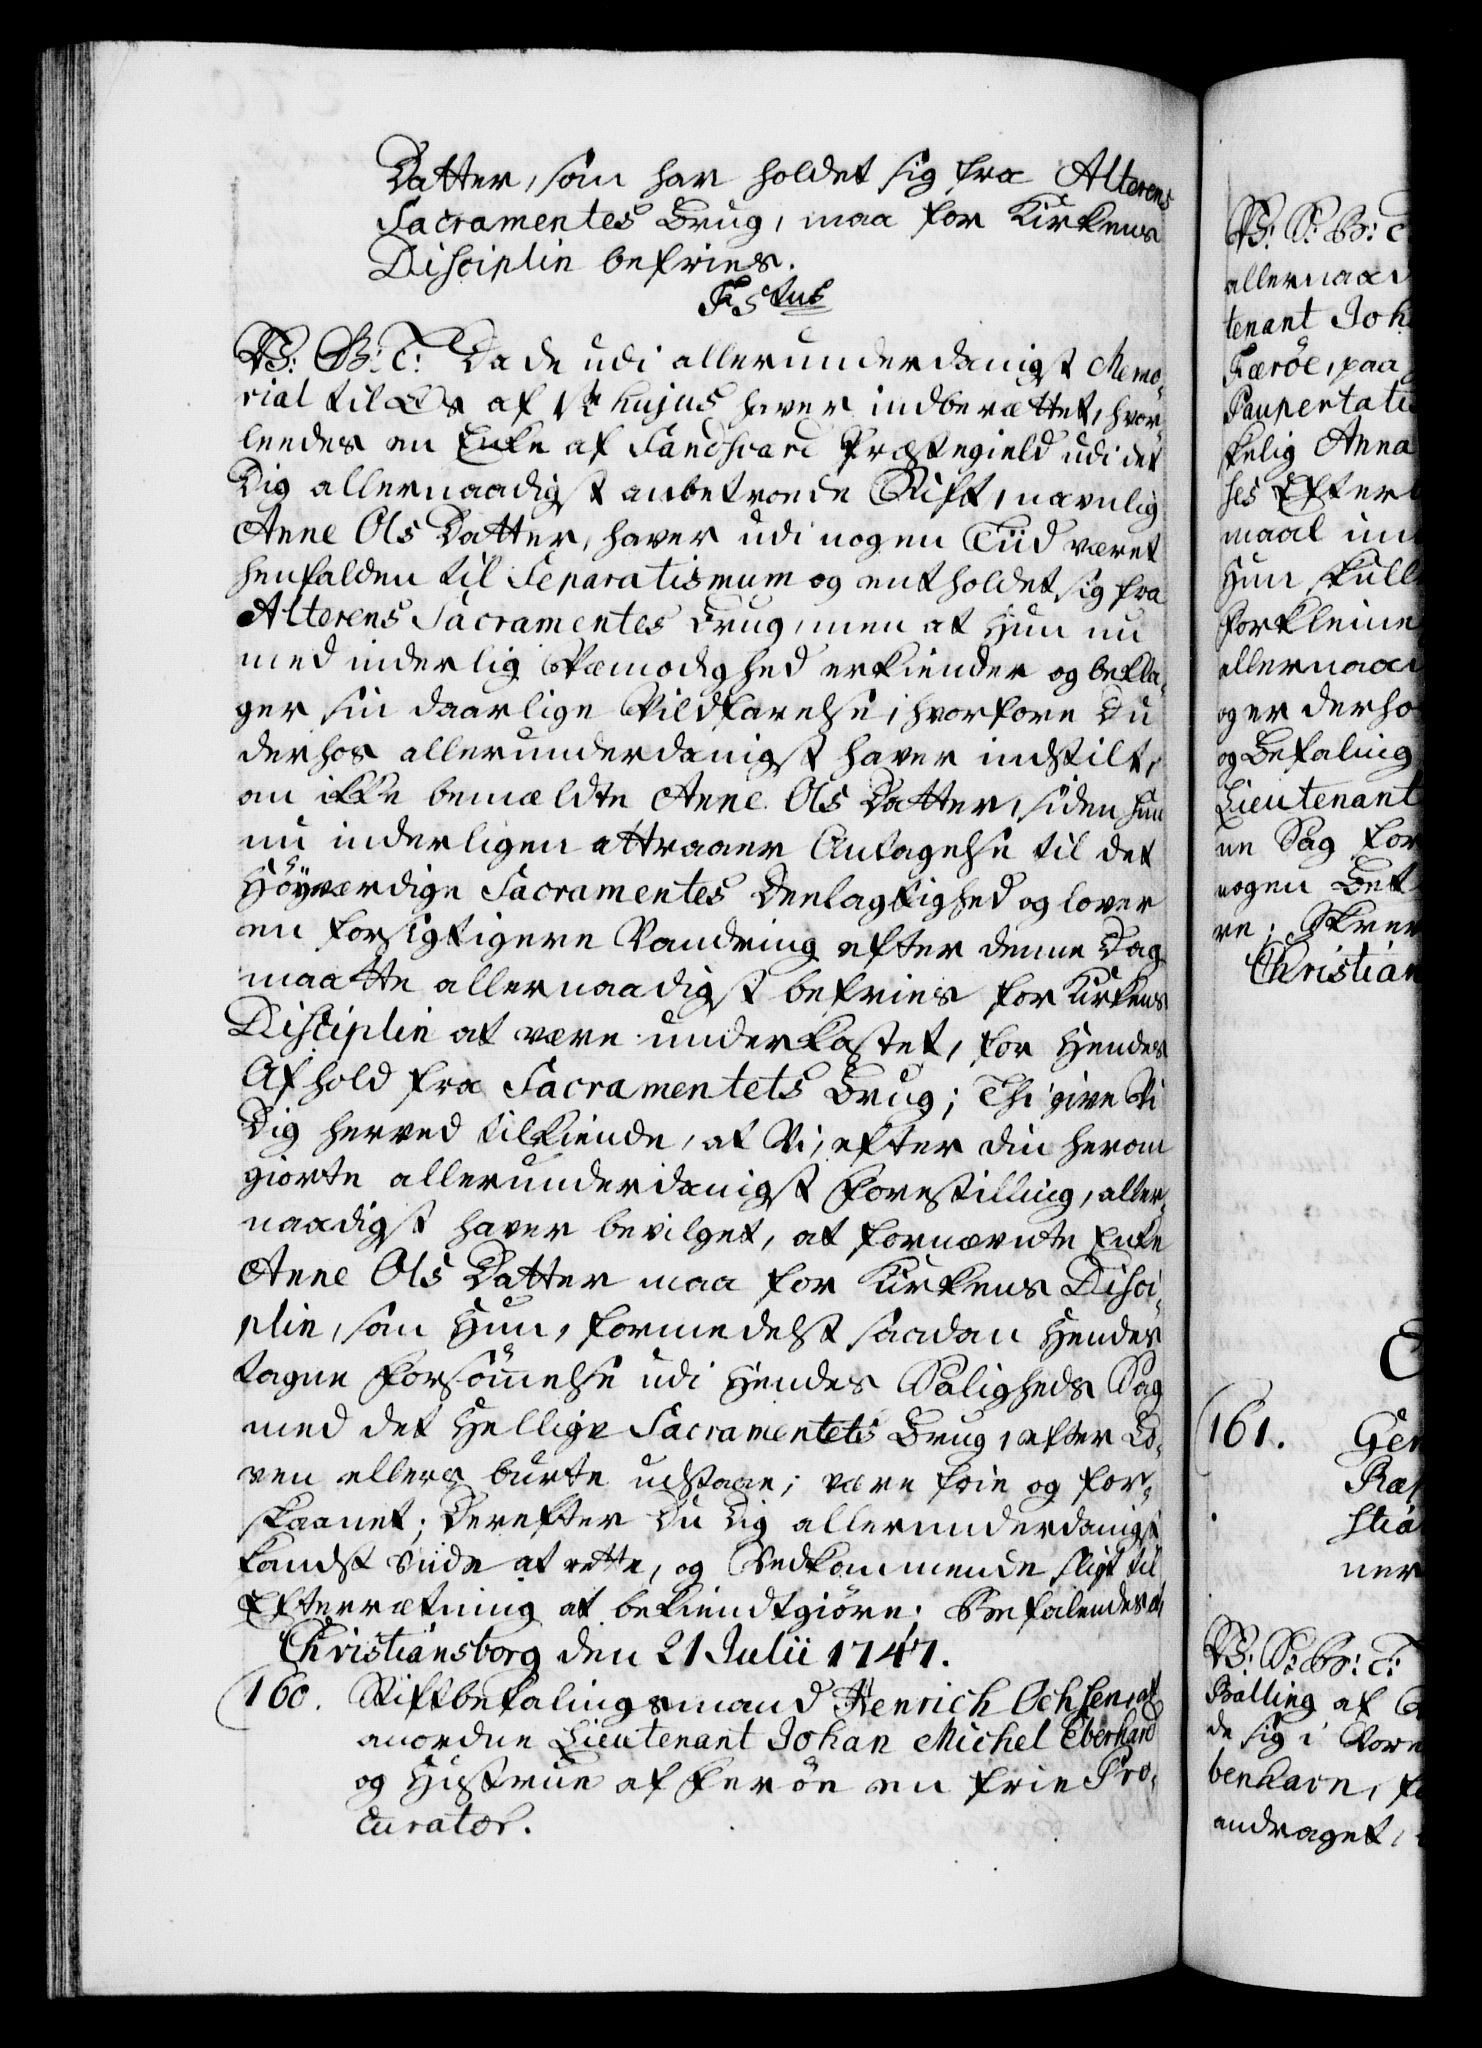 Datter, som har holdet sig fra Alterens
Sacramentes Brug, maa for Kirkens
Disciplin befries.
V: G: T: Da de udi allerunderdanigst Memo-
rial til Os af hujus haver indberættet, hvor-
ledes en Enke af Sandsverd Præstegield udi det
Dig allernaadigst anbetroede Stift, navnlig
Anne Ols Datter, haver udi nogen Tiid været
henfalden til Separatismum og entholdet sig fra
Alterens Sacramentes Brug, men at Hun nu
med inderlig Vemodighed erkiender og bekla-
ger sin daarlige Vildfarelse, hvorfore Du
derhos allerunderdanigst haver indstilt,
om ikke bemældte Anne Ols Datter, siden Hun
nu inderligen attraaer Antagelse til det
Høyværdige Sacramentes Deelagtighed og lover
en forsigtigere Vandring efter denne Dag
maatte allernaadigst befries for Kirkens
Disciplin at være underkastet, for Hendes
Afhold fra Sacramentets Brug; Thi give Vi
Dig herved tilkiende, at Vi, efter din herom
giorte allerunderdanigst Forestilling, aller-
naadigst haver bevilget, at fornævnte Enke
Anne Ols Datter maa for Kirkens Disci-
plin, som Hun, formedelst saadan Hendes
tagne Forsømmelse udi Hendes Saligheds Sag
med det Hellige Sacramentets Brug, efter Lo-
ven ellers burte udstaae; være frie og for-
skaanet; Derefter Du Dig allerunderdanigst
kandst viide at rette, og Vedkommende sligt til
Efterrætning at bekiendtgiøre; Befalendes
Christiansborg den 21 Julii 1747.
160. Stiftbefalingsmand Henrich Ochsen, at
anordne Lieutenant Johan Michel Eberhard
og Hustrue af Ferøe en frie Pro-
curator.
V: S: G: T:
allernaad
tenant Joh
Færöe, paa
Paupertatis
skelig Anna
ses Efter
maal im
Hun skull
forkleine
allernaad
og er derho
og Befaling
Lieutenant
ne Sag for
nogen Bet
re; Skrev
Christian
161. Gen
Ræ
stia
ner
V: S: G: T:
Balling af
de sig i Vore
benhavn, f
andraget,